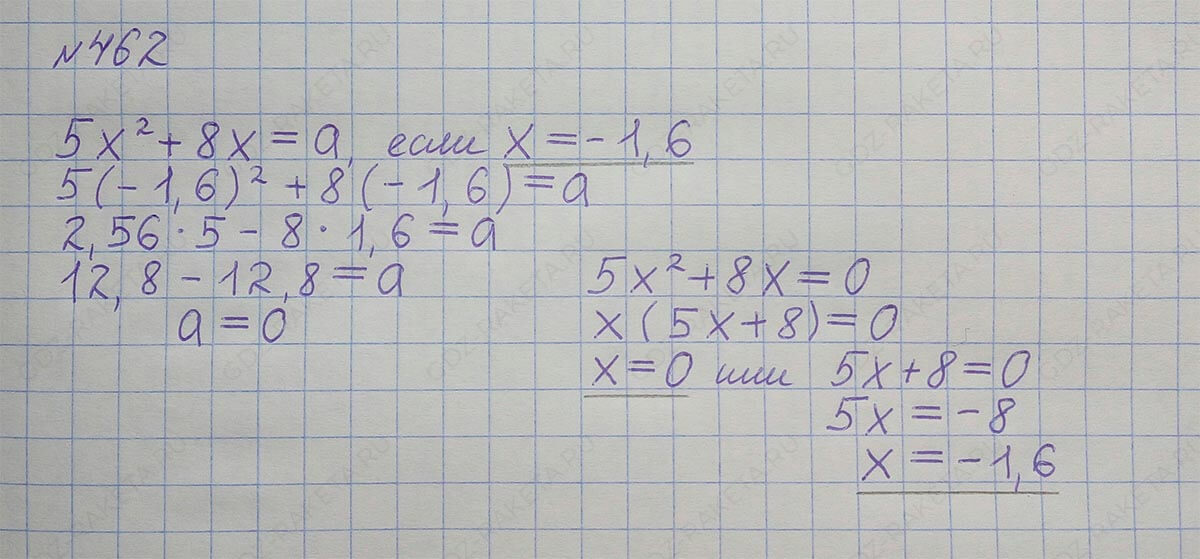 №462
5x² + 8x = a, если x = -1,6
5(-1,6)² + 8(-1,6) = a
2,56·5 - 8·1,6 = a
12,8 - 12,8 = a
a = 0
5x² + 8x = 0
x(5x + 8) = 0
x = 0 или 5x + 8 = 0
5x = -8
x = -1,6
GDZ-RAKETA.RU